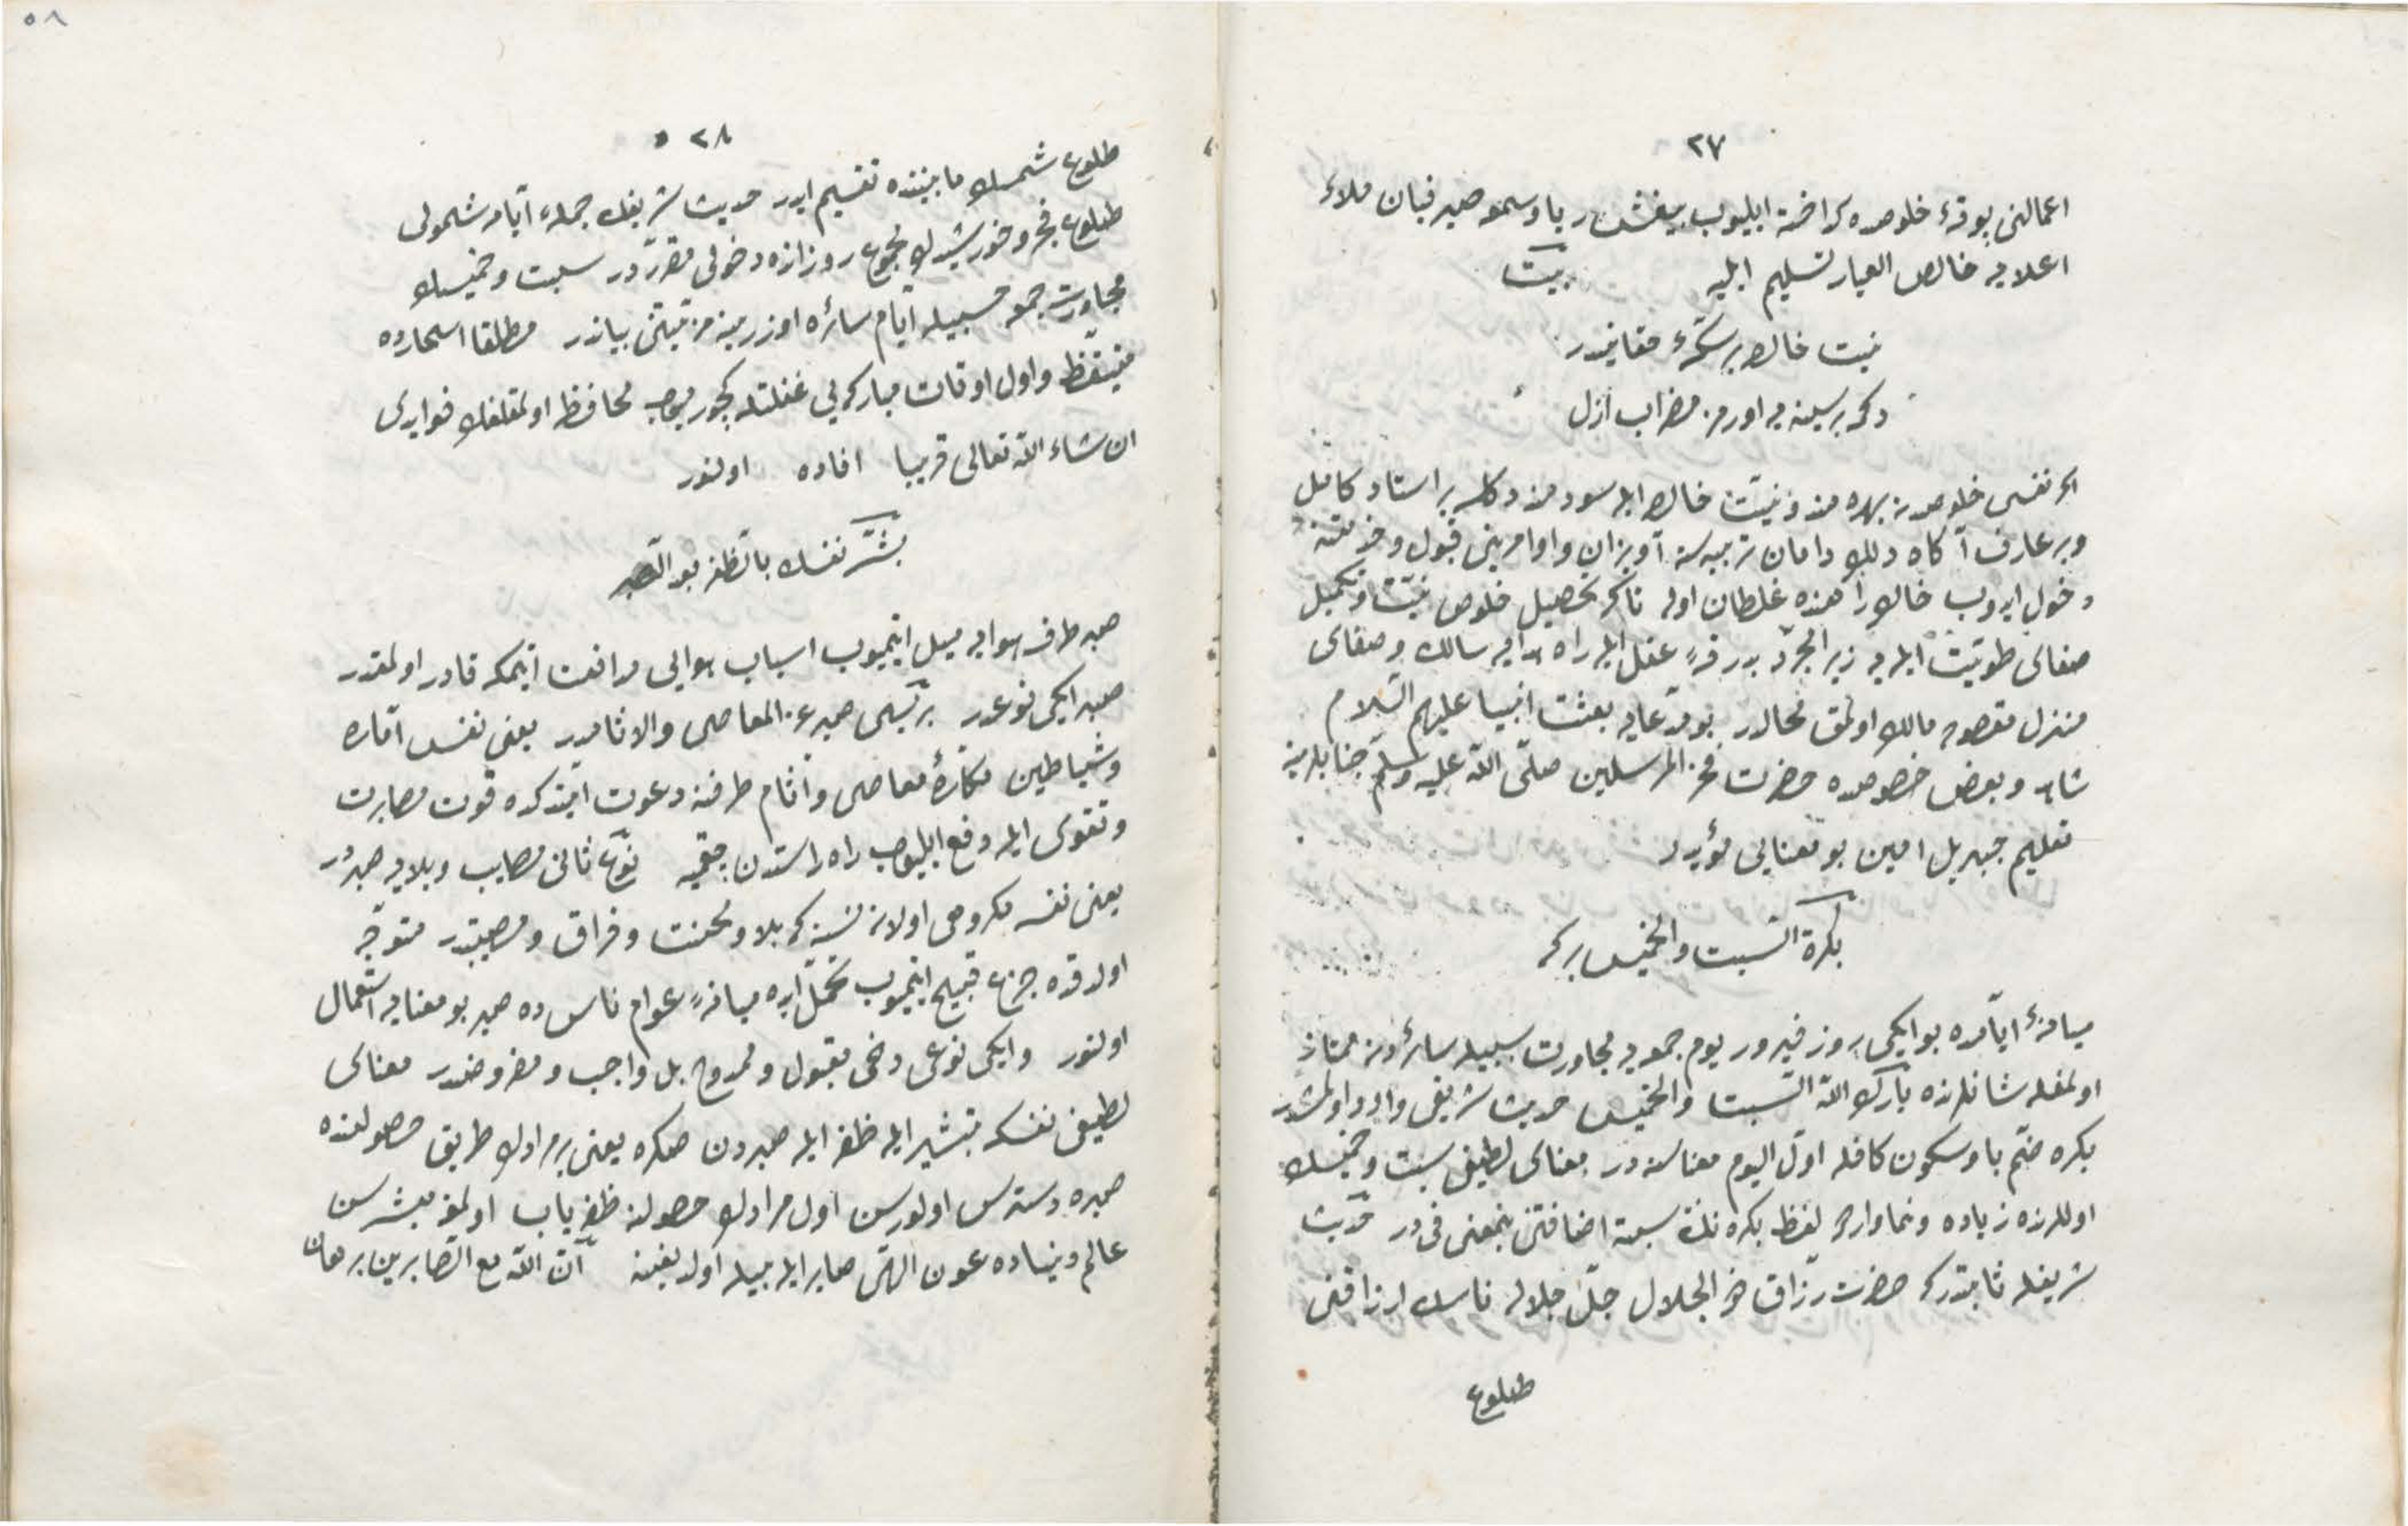 ٢٧
اعمالنى بوتۀ خلوصده كداخته ايليوب بيغش ريا وسمعه صيرفيان ملاء
اعلايه خالص العيار تسليم ايليه بيت
نيت خالص بر حقانيدر
دكمه بر سينه يه اورمز مضراب ازل
اكر نفسى خلوصدن بهره مند ونيت خالص ايله سودمند دكلسه بر استاد كامل
وبر عارف آكاه دلك دامان تربيه سنه آويزان واوامرينى قبول وخدمتنه
دخول ايدوب خاك راهنده غلطان اوله تاكه تحصيل خلوص نيت وتكميل
صفاى طويت ايليه زيرا مجرد بدرقۀ عقل ايله راه هدايه سالك وصفاى
منزل مقصوده مالك اولمق محالدر بو مدعايه بعثت انبيا عليهم السلام
شاهد وبعض خصوصده حضرت فخر المرسلين صلى الله عليه وسلم جنابلرينه
تعليم جبريل امين بو معنايى مؤيددر
بكرة السبت والخميس بركه
ميانۀ ايامده بو ايكى روز فيروز يوم جمعه يه مجاورت سببيله سائردن ممتاز
اولمغله شانلرنده بارك الله السبت والخميس حديث شريفى وارد اولمشدر
بكره ضم با وسكون كافله اول اليوم معناسنه در معناى لطيفى سبت وخميسك
اوللرنده زياده ونما واردر لفظ بكره نك سبته اضافتى بمعنى فى در حديث
شريفله ثابتدر كه حضرت رزاق ذو الجلال جل جلاله ناسك ارزاقنى
طلوع
٢٨
طلوع شمسك مابيننده تقسيم ايدر حديث شريفك جملۀ ايامه شمولى
طلوع فجر وخورشيدك مجموع روزلرده دخولى مقرردر سبت وخميسك
مجاورت جمعه حسبيله ايام سائره اوزرينه مزيتنى بياندر مطلقا اسحارده
متيقظ واول اوقات مباركه يى غفلتله كچورميوب محافظه اولمقلغك فوايدى
ان شاء الله تعالى قريبا افاده اولنور
بشر نفسك بالظفر بعد الصبر
صبر طرف هوايه ميل ايتميوب اسباب هوايى مدافعت ايتمكه قادر اولمقدر
صبر ايكى نوعدر بريسى صبر عن المعاصى والاثامدر يعنى نفس اماره
وشياطين مكاره معاصى وآثام طرفنه دعوت ايتدكده قوت مصابرت
وتقوى ايله دفع ايليوب راه راستدن چقميه نوع ثانى مصايب وبلايه صبردر
يعنى نفسه مكروهى اولان نسنه كه بلا ومحنت وفراق ومصيبتدر متوجه
اولدقده جزع قبيح ايتميوب تحمل ايده ميانۀ عوام ناس ده صبر بو معنايه استعمال
اولنور وايكى نوعى دخى مقبول وممدوح بل واجب ومفروضدر معناى
لطيفى نفسكه تبشير ايله ظفر ايله صبردن صكره يعنى بر مرادك طريق حصولنده
صبره دسترس اولورسن اول مرادك حصولنه ظفرياب اولمغه مبشرسن
عالم دنياده عون الهى صابر ايله بيله اولديغنه ان الله مع الصابرين برهان